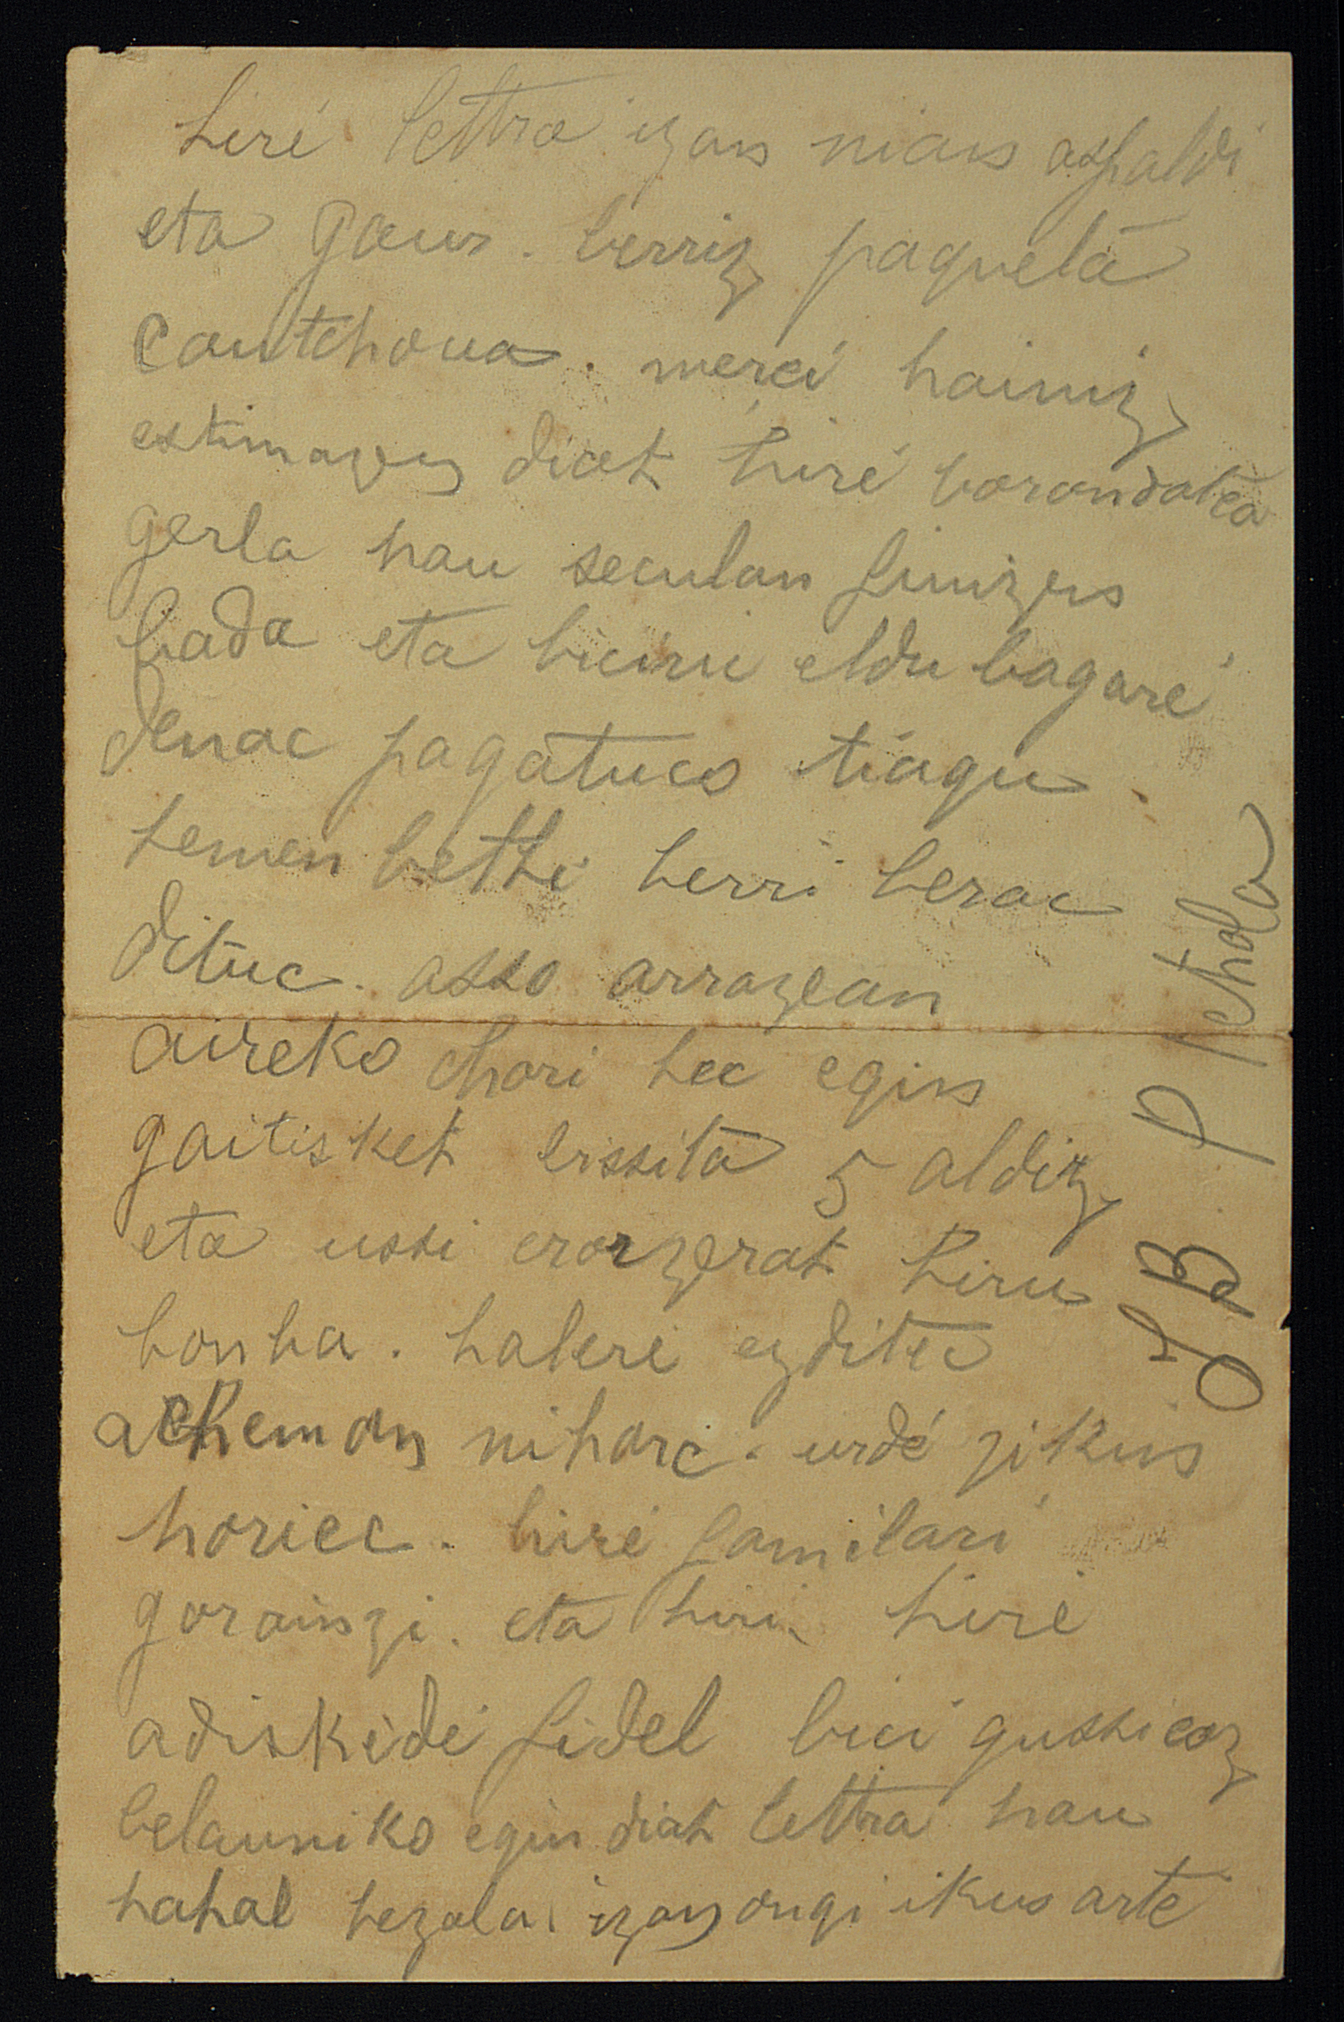 hiré lettra izan nian aspaldi
eta gaur. berriz paqueta
cautchoua. merci hainiz
estimazen diat hiré borondatea
gerla hau seculan finizen
bada eta biciric eldu bagaré
denac pagatuco tiagu
hemen bethi berri berac
dituc. asso arrazean
aireko chori hec egin
gaitisket bissita 5 aldiz
eta ussi erorzerat hiru
bonba. haleré ezditec
atheman nihorc. urdé zikin
horiec. hiré familiari
gorainzi. eta hiri. hiré
adiskidé fidel bici gussicoz
belauniko egin diat lettra hau
hahal bezala izan ongi ikus arté
J B P Etchola